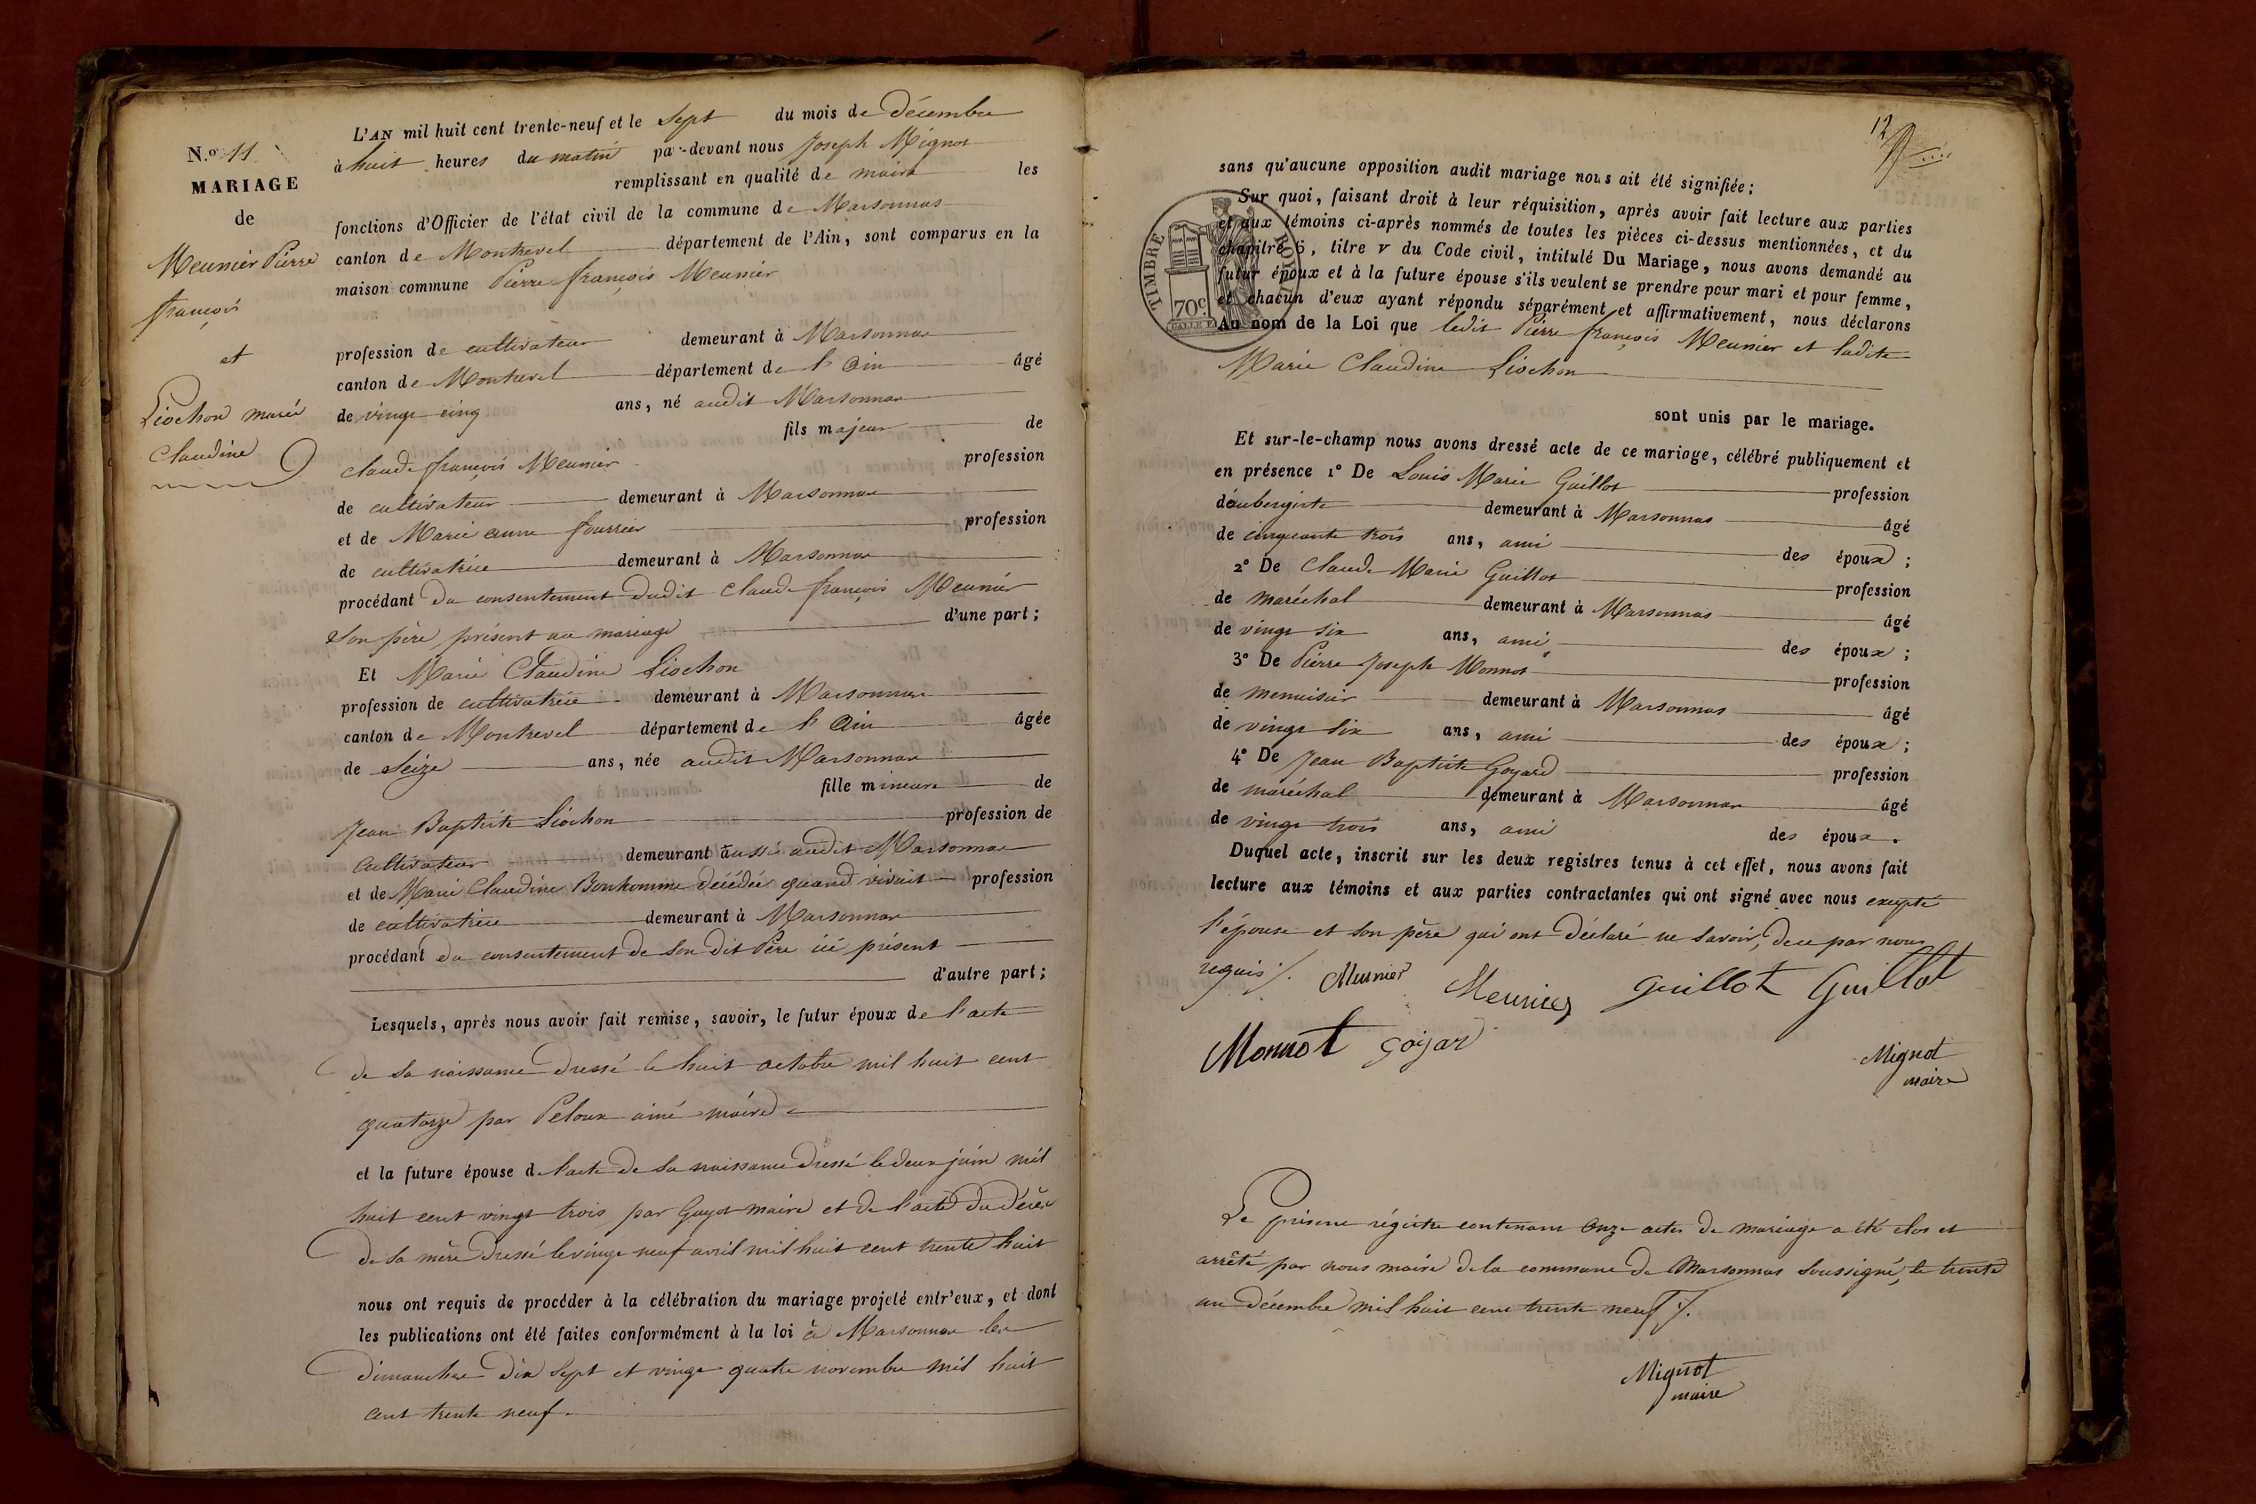 N.º 11
MARIAGE
de
Meunier Pierre
françois
et
Liochon marie
Claudine
L'AN mil huit cent trente-neuf et le Sept du mois de Décembre
à huit heures du matin par-devant nous Joseph Mignot
remplissant en qualité de maire les
fonctions d'Officier de l'état civil de la commune de Marsonnas
canton de Montrevel département de l'Ain, sont comparus en la
maison commune Pierre françois Meunier
profession de cultivateur demeurant à Marsonnas
canton de Montrevel département de l'Ain âgé
de vingt cinq ans, né audit Marsonnas
fils majeur de
claude françois Meunier profession
de cultivateur demeurant à Marsonnas
et de Marie anne fourrier profession
de cultivatrice demeurant à Marsonnas
procédant du consentement dudit claude françois Meunier
son père présent au mariage d'une part;
Et Marie Claudine Liochon
profession de cultivatrice demeurant à Marsonnas
canton de Montrevel département de l'Ain âgée
de Seize ans, née audit Marsonnas
fille mineure de
Jean Baptiste Liochon profession de
cultivateur demeurant aussi audit Marsonnas
et de Marie Claudine Bonhomme décédée quand vivait profession
de cultivatrice demeurant à Marsonnas
procédant du consentement de son dit Père ici présent
d'autre part;
Lesquels, après nous avoir fait remise, savoir, le futur époux de l'acte
de sa naissance dressé le huit octobre mil huit cent
quatorze par Peloux ainé maire
et la future épouse de l'acte de sa naissance dressé le deux juin mil
huit cent vingt trois par Guyot maire et de l'acte du décès
de sa mère dressé le vingt neuf avril mil huit cent trente huit
nous ont requis de procéder à la célébration du mariage projeté entr'eux, et dont
les publications ont été faites conformément à la loi à Marsonnas les
dimanches dix sept et vingt quatre novembre mil huit
cent trente neuf.
12
sans qu'aucune opposition audit mariage nous ait été signifiée;
Sur quoi, faisant droit à leur réquisition, après avoir fait lecture aux parties
et aux témoins ci-après nommés de toutes les pièces ci-dessus mentionnées, et du
chapitre 6, titre v du Code civil, intitulé Du Mariage, nous avons demandé au
futur époux et à la future épouse s'ils veulent se prendre pour mari et pour femme,
et chacun d'eux ayant répondu séparément et affirmativement, nous déclarons
Au nom de la Loi que ledit Pierre françois Meunier et ladite
Marie Claudine Liochon
sont unis par le mariage.
TIMBRE ROYAL
70c
Et sur-le-champ nous avons dressé acte de ce mariage, célébré publiquement et
en présence 1º De Louis Marie Guillot profession
d'aubergiste demeurant à Marsonnas âgé
de cinquante trois ans, ami des époux;
2º De Claude Marie Guillot profession
de maréchal demeurant à Marsonnas âgé
de vingt six ans, ami des époux;
3º De Pierre Joseph Monnot profession
de menuisier demeurant à Marsonnas âgé
de vingt six ans, ami des époux;
4º De Jean Baptiste Goyard profession
de maréchal demeurant à Marsonnas âgé
de vingt trois ans, ami des époux.
Duquel acte, inscrit sur les deux registres tenus à cet effet, nous avons fait
lecture aux témoins et aux parties contractantes qui ont signé avec nous excepté
l'épouse et son père qui ont déclaré ne savoir, de ce par nous
requis ./.
Meunier Meunier Guillot Guillot
Monnot goyar
Mignot
maire
Le présent régistre contenant Onze actes de mariage a été clos et
arrêté par nous maire de la commune de Marsonnas soussigné, le trente
un décembre mil huit cent trente neuf ./.
Mignot
maire